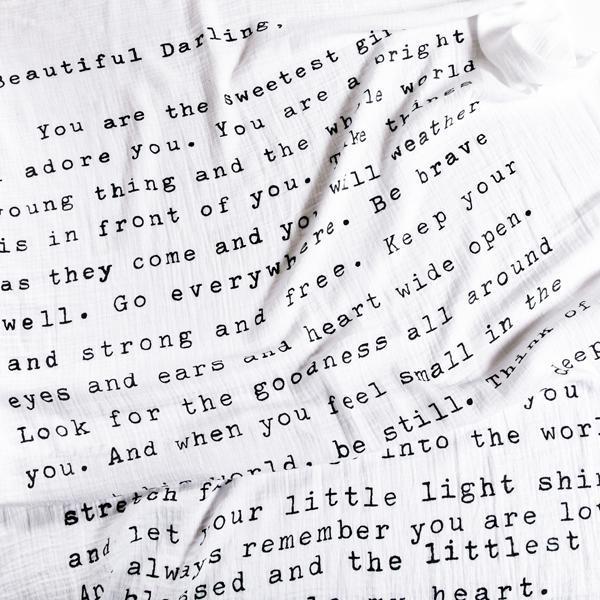 Beautiful Darling,
You are the sweetest
adore you. You are a bright
young thing and the whole world
is in front of you. Take things
as they come and you will weather
well. Go everywhere. Be brave
and strong and free. Keep your
eyes and ears and heart wide open.
Look for the goodness all around
you. And when you feel small in the
world, be still. Think of
stretch into the
and let your little light
always remember you are
and the littlest
heart.